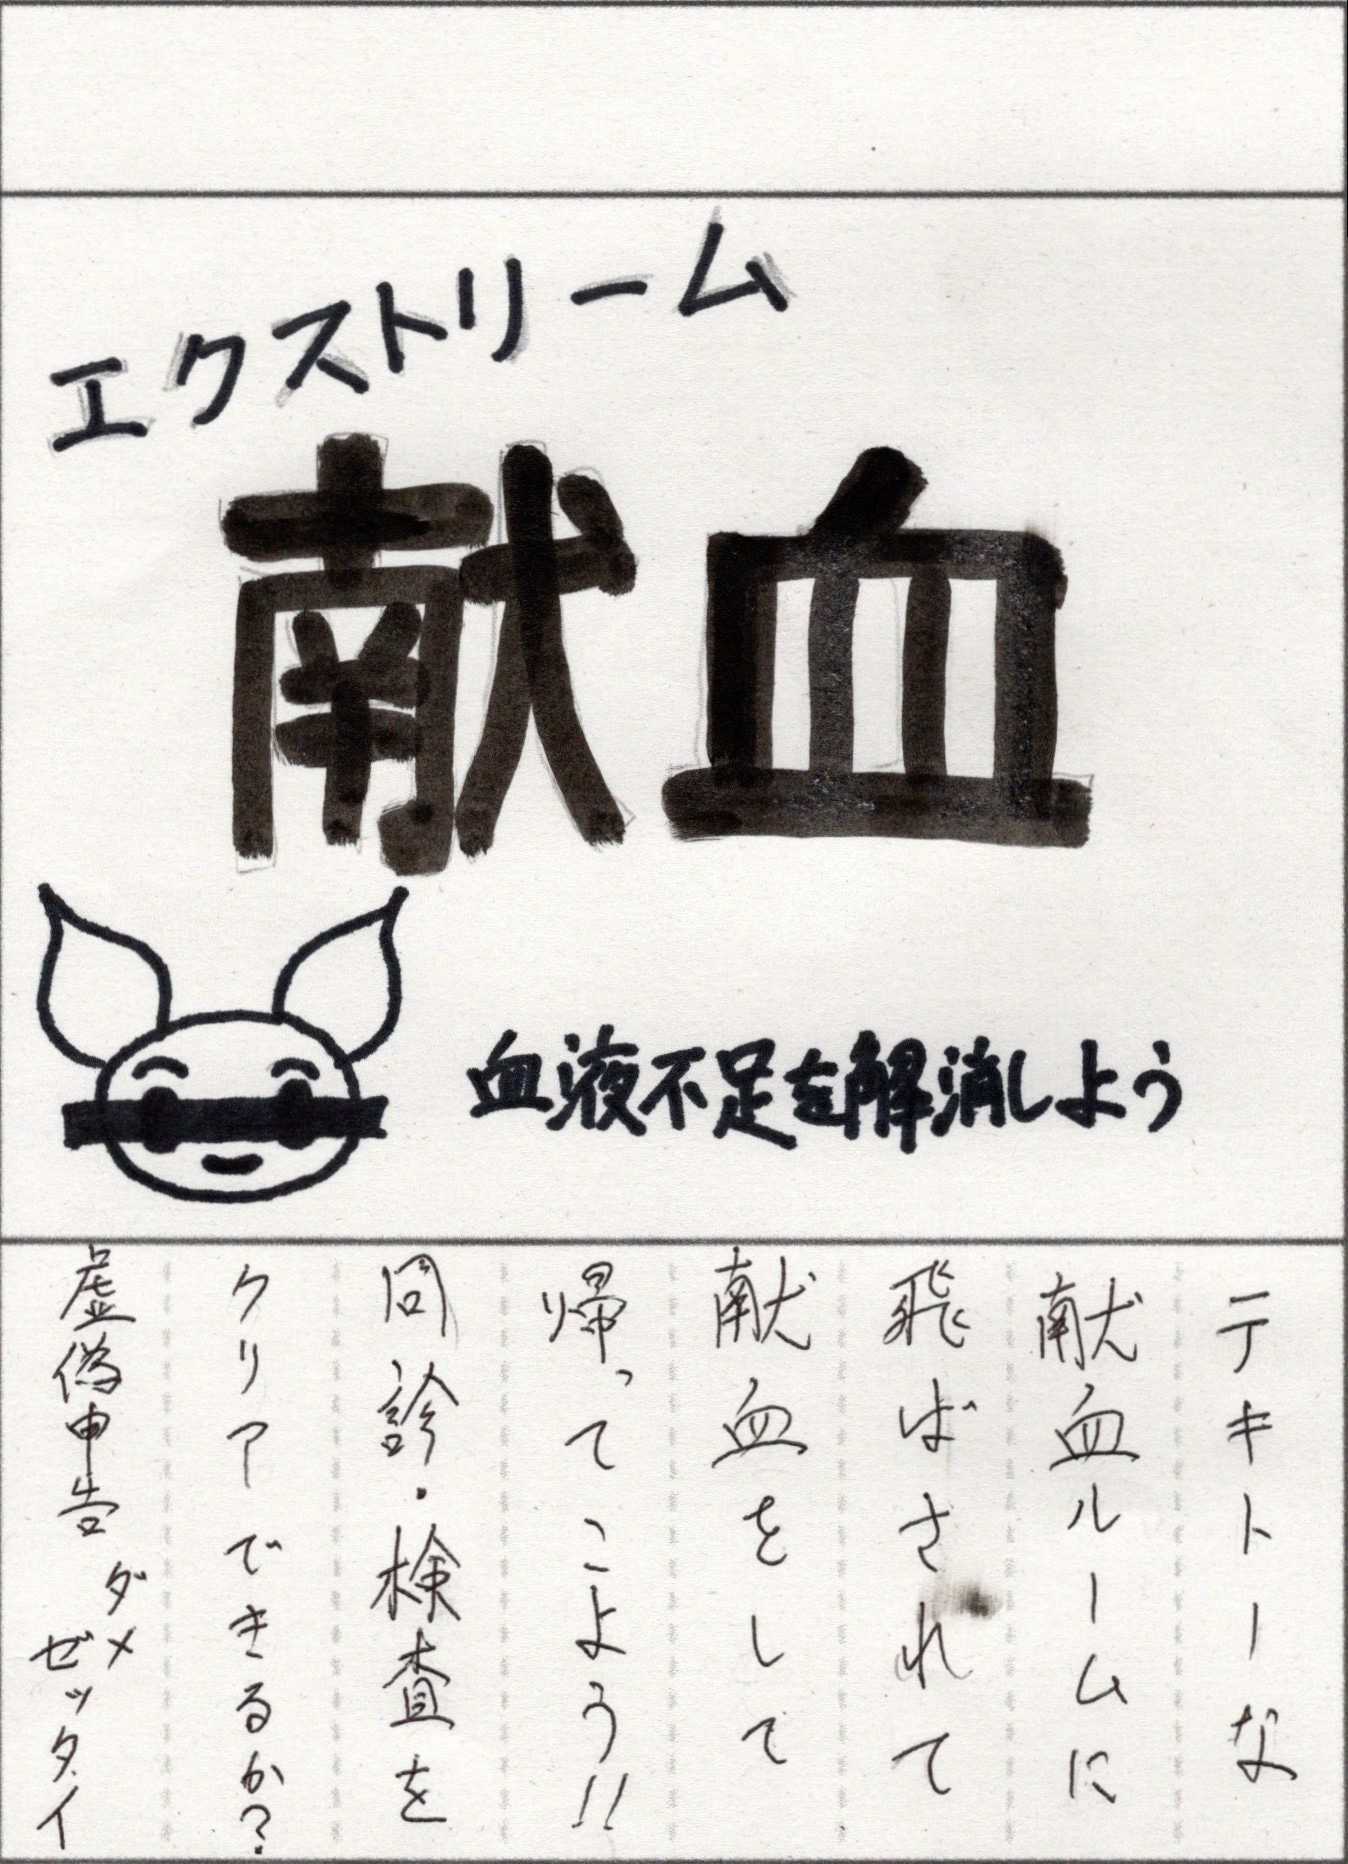 エクストリーム
献血
血液不足を解消しよう
テキトーな
献血ルームに
飛ばされて
献血をして
帰ってこよう!!
問診・検査を
クリアできるか?
虚偽申告
ダメ
ゼッタイ